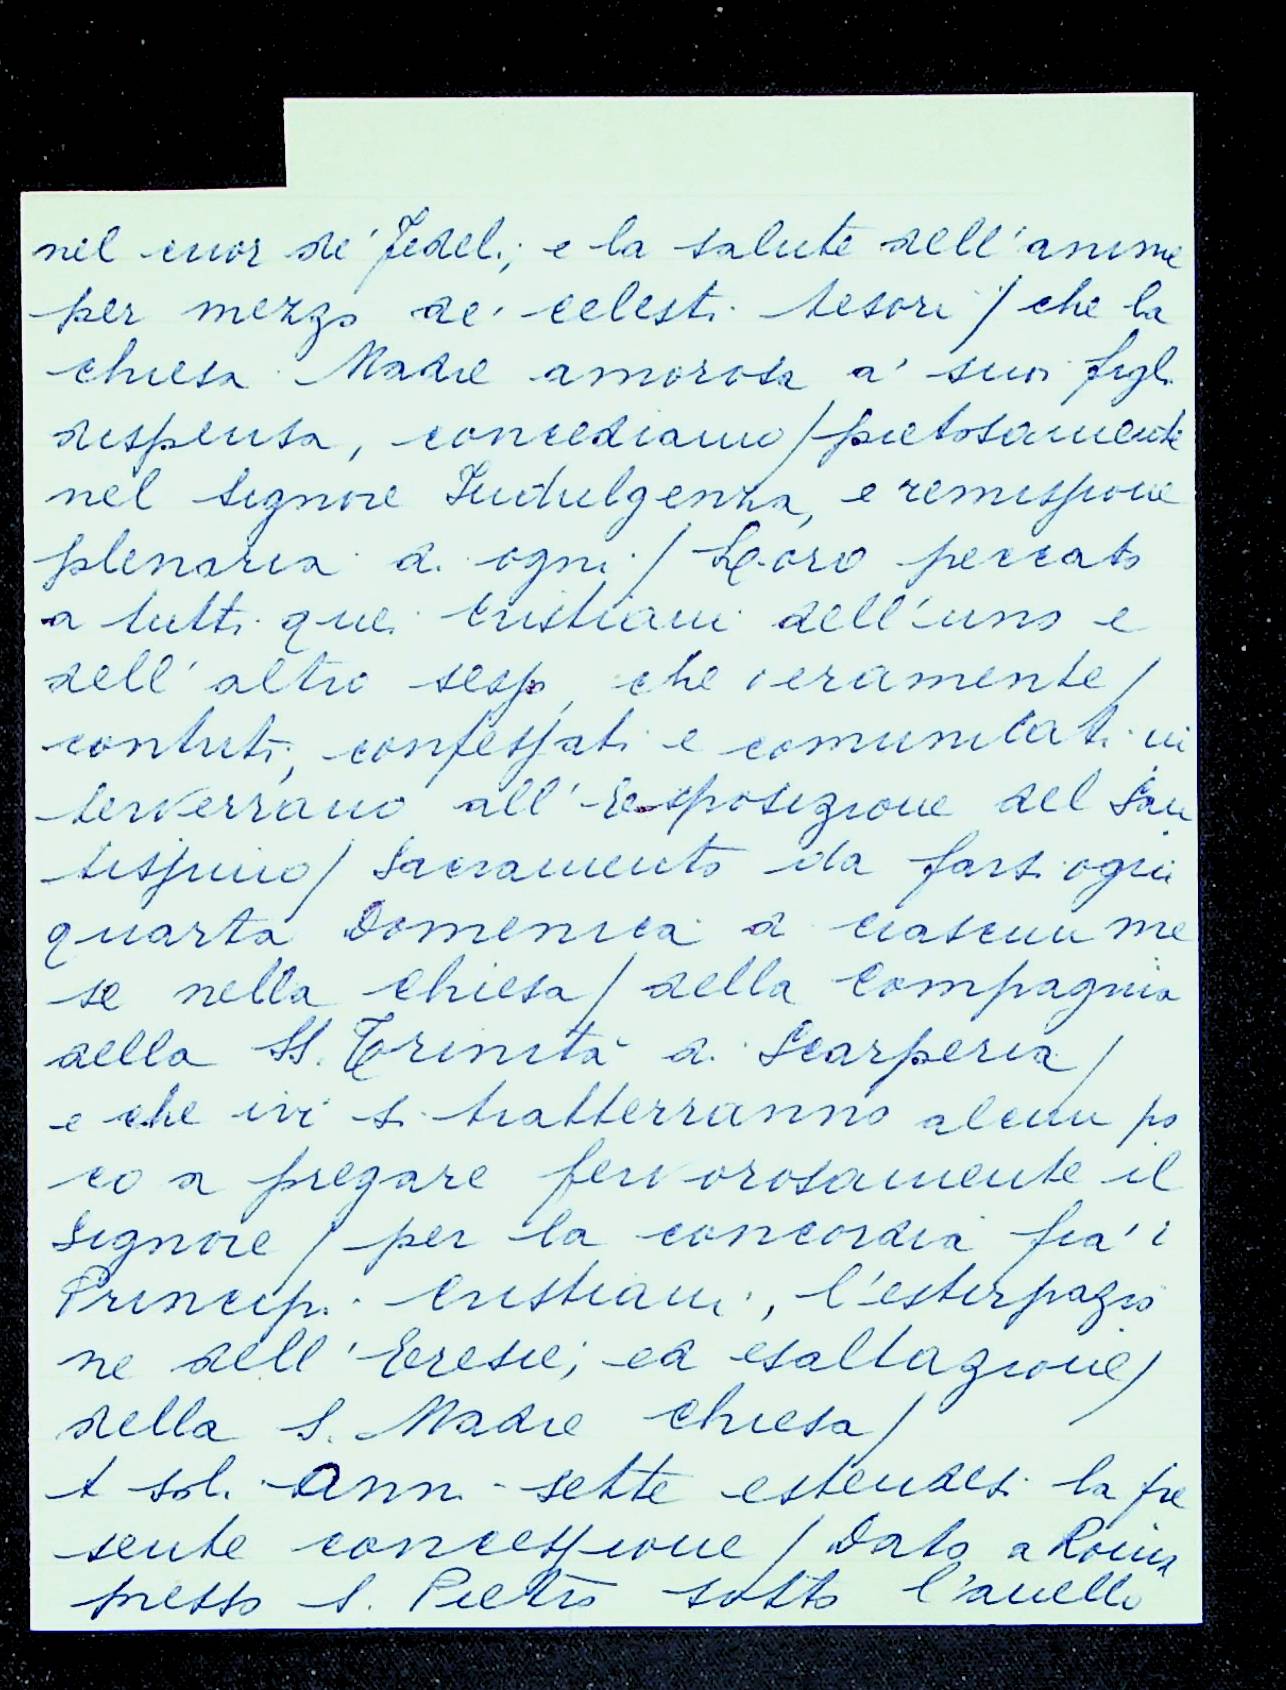 nel cuor de' Fedeli; e la salute dell'anime
per mezzo de' celesti tesori / che la
chiesa Madre amorosa a' suoi figli
dispensa, concediamo / pietosamente
nel Signore Indulgenza, e remissione
plenaria di ogni / Loro peccato
a tutti quei Cristiani dell'uno e
dell'altro sesso, che veramente /
contriti, confessati e comunicati in
terverrano all'Esposizione del San
tissimo / Sacramento da farsi ogni
quarta Domenica di ciascun me
se nella Chiesa / della Compagnia
della SS. Trinità di Scarperia /
e che ivi si tratterranno alcun po
co a pregare fervorosamente il
Signore / per la concordia fra' i
Principi Cristiani, l'estirpazio
ne dell'Eresie; ed esaltazione /
della S. Madre Chiesa /
A soli Anni sette estendesi la pre
sente concessione / Dato a Roma
presso S. Pietro sotto l'anello